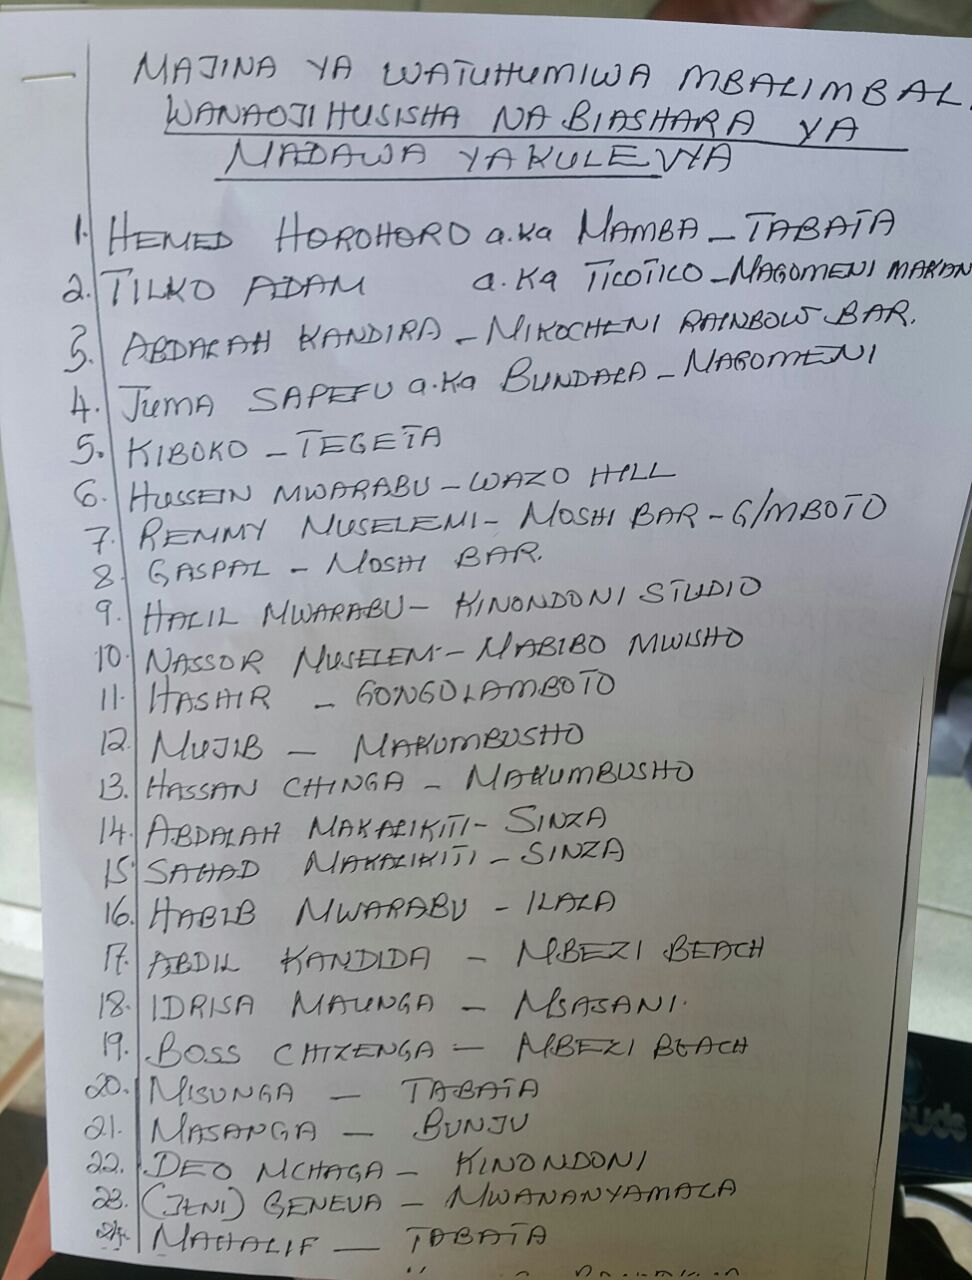 MAJINA YA WATUHUMIWA MBALIMBAL
WANAOJIHUSISHA NA BIASHARA YA
MADAWA YAKULEVYA
1. HEMED HOROHORO a.ka MAMBA - TABATA
2. TILKO ADAM a.ka TICOTICO - MAGOMENI MAKAN
3. ABDALAH KANDIRA - MIKOCHENI RAINBOW BAR.
4. JUMA SAPEFU a.ka BUNDALA - MAGOMENI
5. KIBOKO - TEGETA
6. HUSSEIN MWARABU - WAZO HILL
7. REMMY MUSELEMI - MOSHI BAR - G/MBOTO
8. GASPAL - MOSHI BAR.
9. HALIL MWARABU - KINONDONI STUDIO
10. NASSOR MUSELEM - MABIBO MWISHO
11. HASHIR - GONGOLAMBOTO
12. MUJIB - MAKUMBUSHO
13. HASSAN CHINGA - MAKUMBUSHO
14. ABDALAH MAKALIKITI - SINZA
15 SAHAD MAKALIKITI - SINZA
16. HABIB MWARABU - ILALA
17. ABDIL KANDIDA - MBEZI BEACH
18. IDRISA MAUNGA - MSASANI.
19. BOSS CHIZENGA - MBEZI BEACH
20. MISUNGA - TABATA
21. MASANGA - BUNJU
22. DEO MCHAGA - KINONDONI
23. (JENI) GENEVA - MWANANYAMALA
24. MAHALIF - TABATA